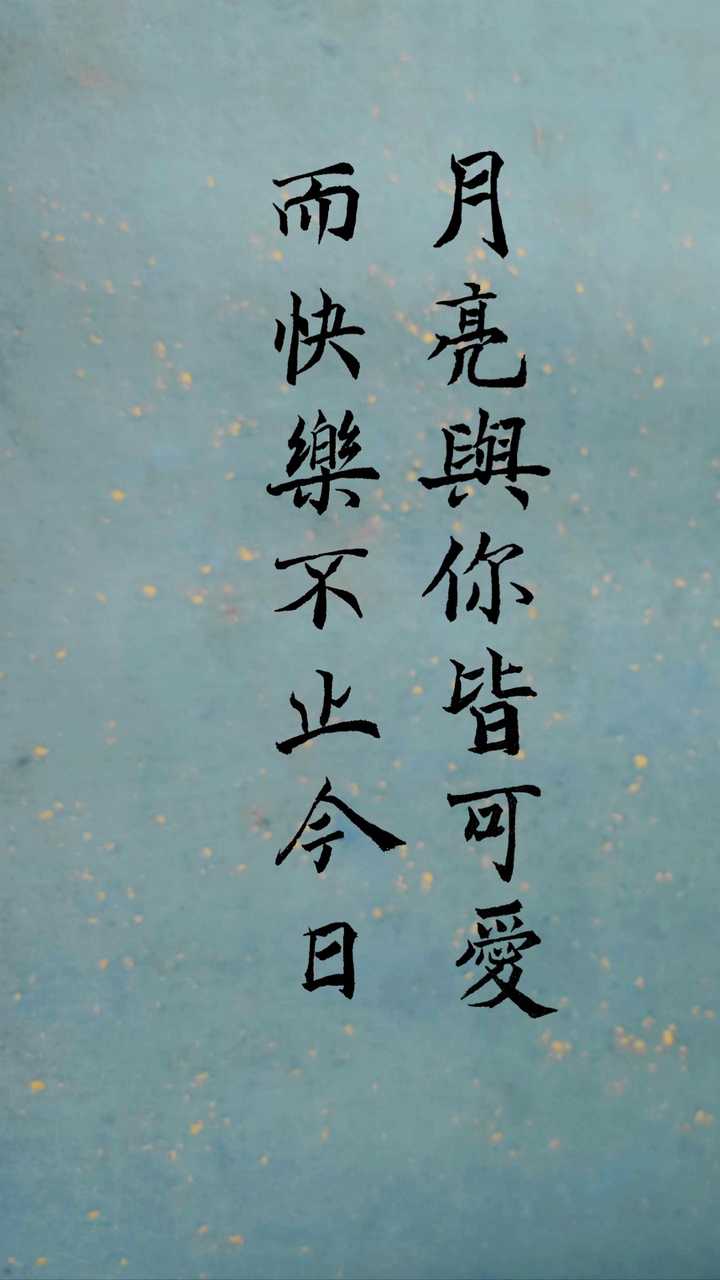 月亮與你皆可愛
而快樂不止今日